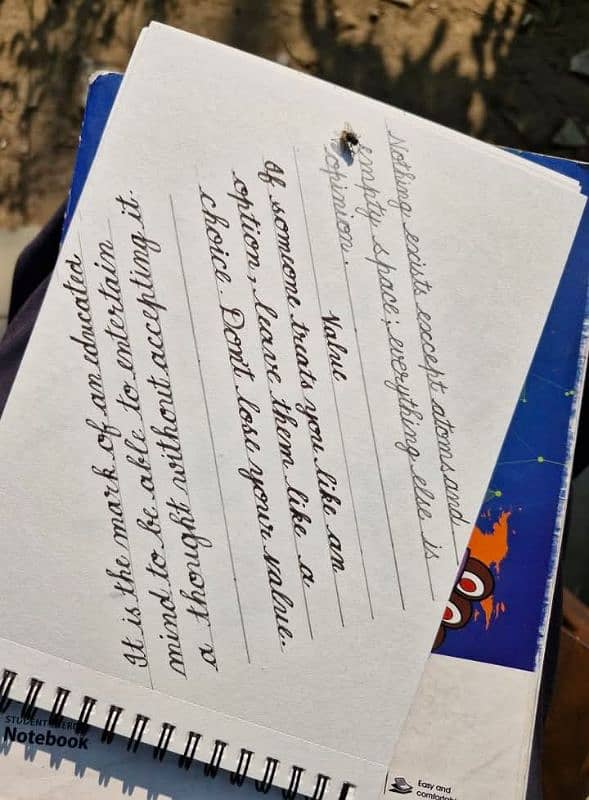 Nothing exists except atoms and
empty space; everything else is
opinion.
Value
If someone treats you like an
option, leave them like a
choice. Don't lose your value.
It is the mark of an educated
mind to be able to entertain
a thought without accepting it.
STUDENT
Notebook
Easy and